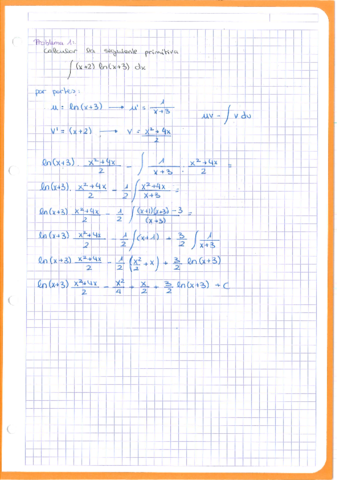 Problema 1:
Calcular la siguiente primitiva
∫ (x+2) ln(x+3) dx
por partes:
u = ln(x+3) → u' = 1/(x+3)
uv - ∫ v du
v' = (x+2) → v = (x²+4x)/2
ln(x+3) · (x²+4x)/2 - ∫ 1/(x+3) · (x²+4x)/2 =
ln(x+3) · (x²+4x)/2 - 1/2 ∫ (x²+4x)/(x+3) =
ln(x+3) (x²+4x)/2 - 1/2 ∫ ((x+1)(x+3)-3)/(x+3) =
ln(x+3) (x²+4x)/2 - 1/2 ∫ (x+1) + 3/2 ∫ 1/(x+3)
ln(x+3) (x²+4x)/2 - 1/2 (x²/2 + x) + 3/2 ln(x+3)
ln(x+3) (x²+4x)/2 - x²/4 - x/2 + 3/2 ln(x+3) + C